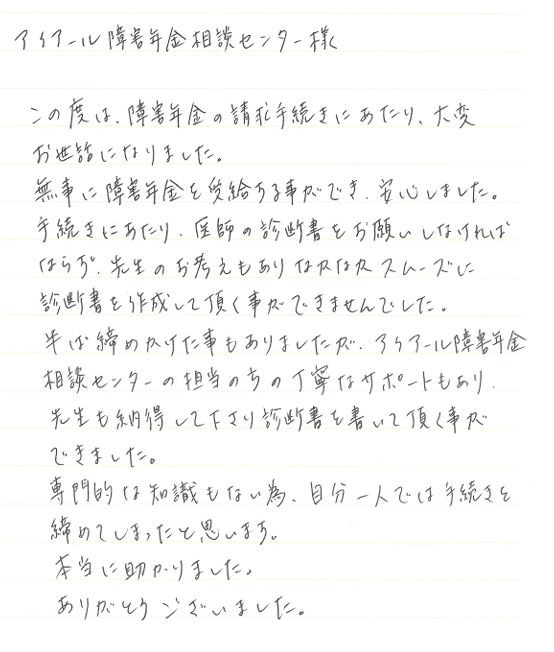 アイアール障害年金相談センター様
この度は、障害年金の請求手続きにあたり、大変
お世話になりました。
無事に障害年金を受給する事ができ、安心しました。
手続きにあたり、医師の診断書をお願いしなければ
ならず、先生のお考えもありなかなかスムーズに
診断書を作成して頂く事ができませんでした。
半ば締めかけた事もありましたが、アイアール障害年金
相談センターの担当の方の丁寧なサポートもあり、
先生も納得して下さり診断書を書いて頂く事が
できました。
専門的な知識もない為、自分一人では手続きを
締めてしまったと思います。
本当に助かりました。
ありがとうございました。